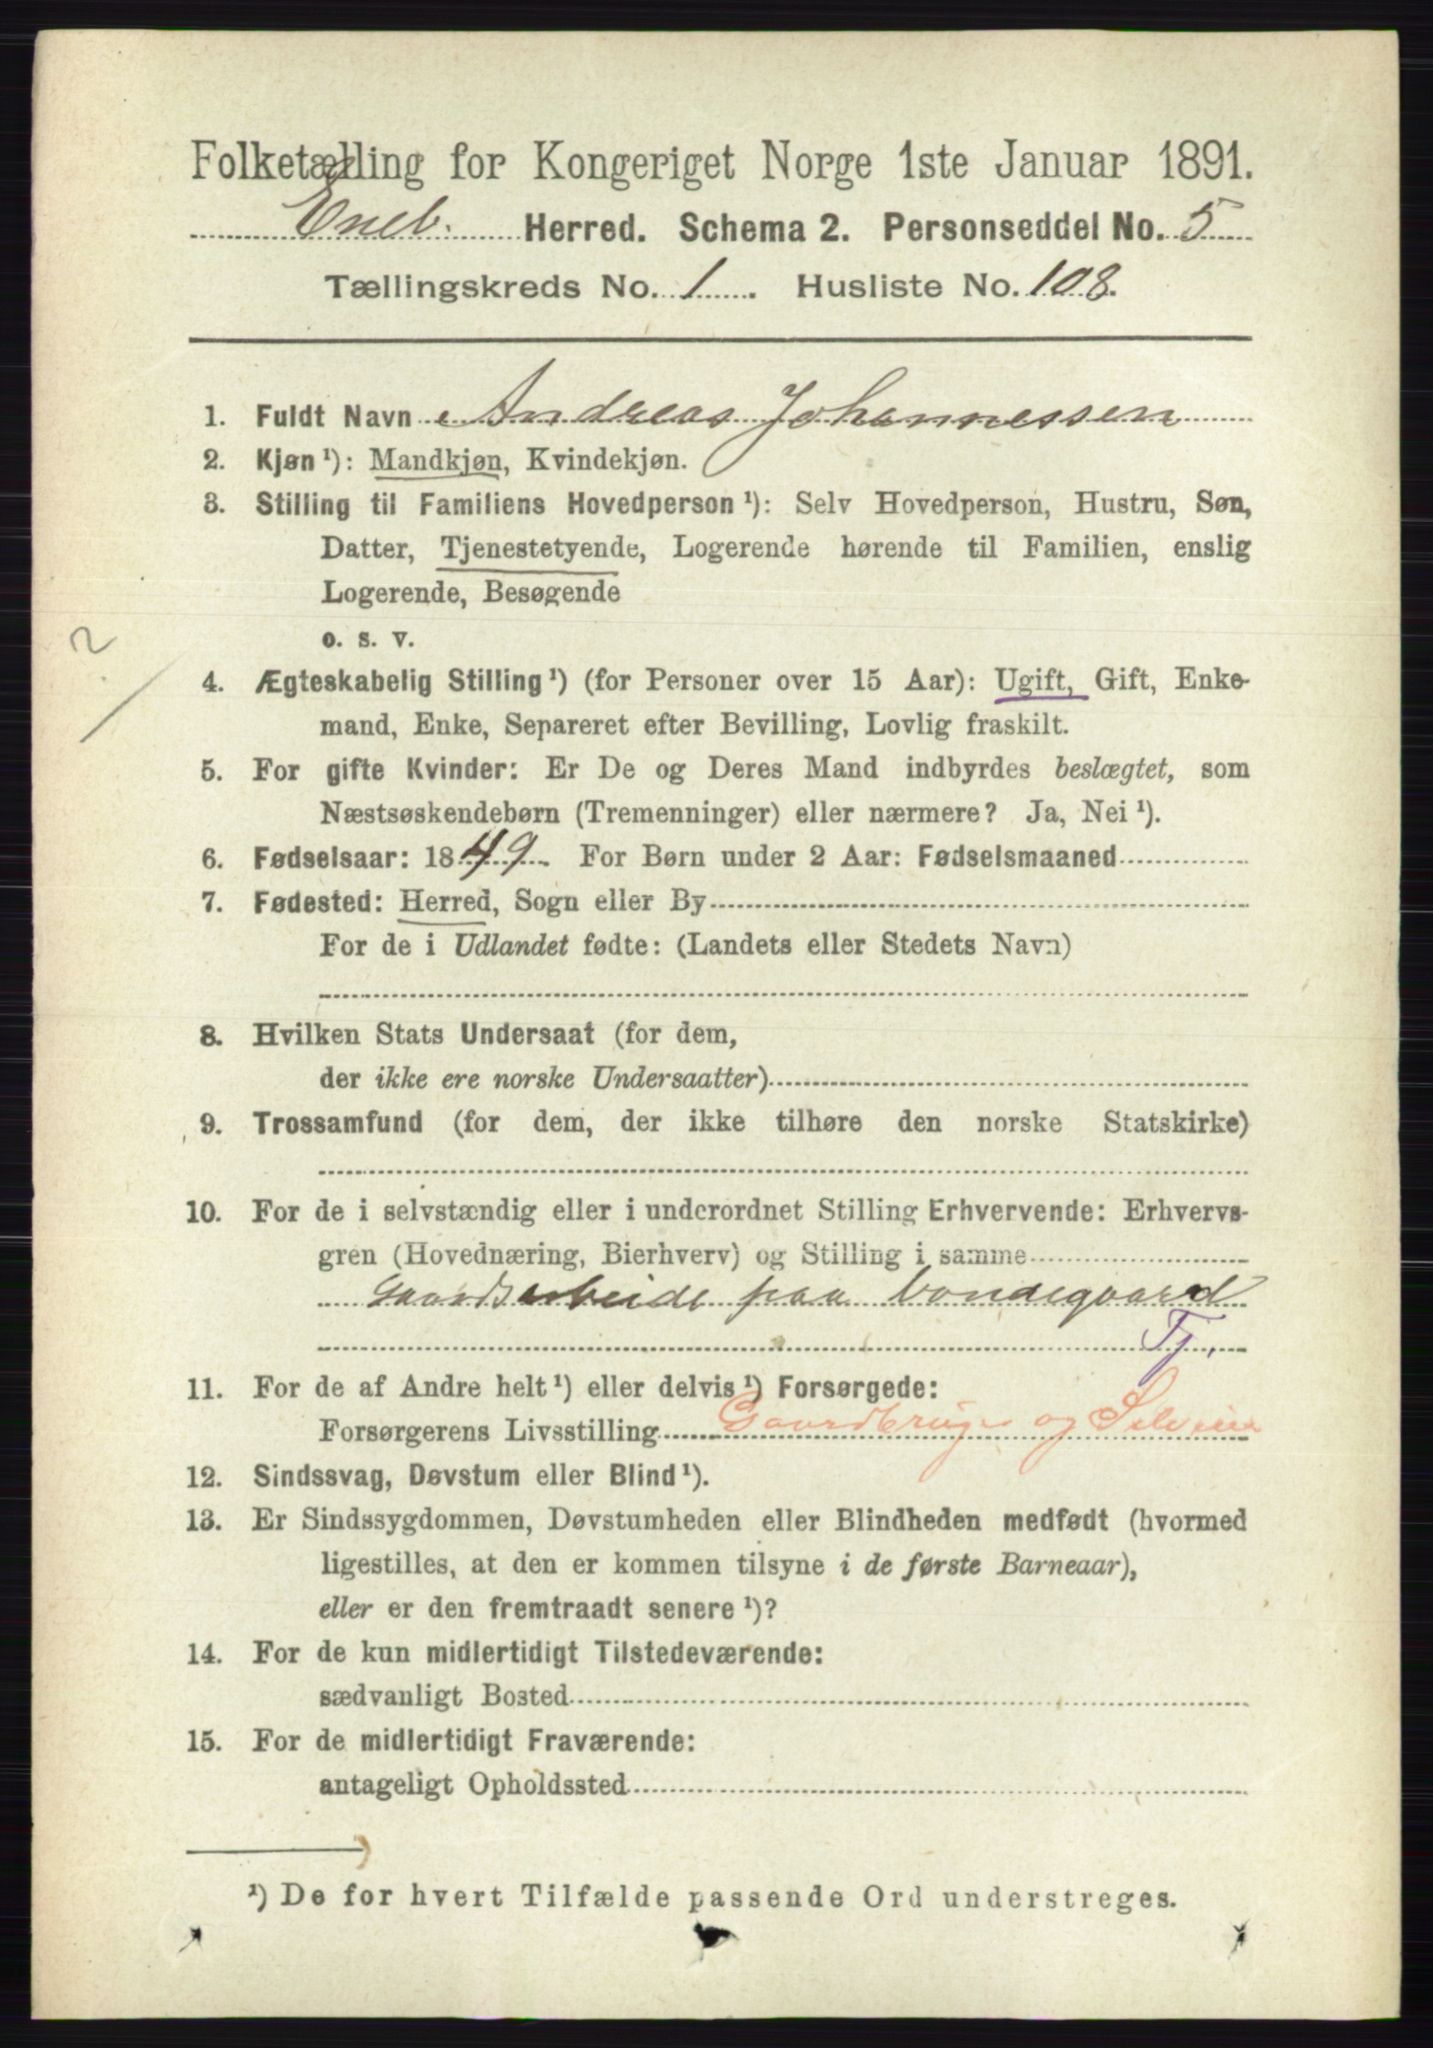 Folketælling for Kongeriget Norge 1ste Januar 1891.
Eneb. Herred. Schema 2. Personseddel No. 5
Tællingskreds No. 1. Husliste No. 108.
1. Fuldt Navn Andreas Johannessen
2. Kjøn ¹): Mandkjøn, Kvindekjøn.
3. Stilling til Familiens Hovedperson ¹): Selv Hovedperson, Hustru, Søn,
Datter, Tjenestetyende, Logerende hørende til Familien, enslig
Logerende, Besøgende
o. s. v.
2
4. Ægteskabelig Stilling ¹) (for Personer over 15 Aar): Ugift, Gift, Enke-
mand, Enke, Separeret efter Bevilling, Lovlig fraskilt.
5. For gifte Kvinder: Er De og Deres Mand indbyrdes beslægtet, som
Næstsøskendebørn (Tremenninger) eller nærmere? Ja, Nei ¹).
6. Fødselsaar: 1849. For Børn under 2 Aar: Fødselsmaaned
7. Fødested: Herred, Sogn eller By
For de i Udlandet fødte: (Landets eller Stedets Navn)
8. Hvilken Stats Undersaat (for dem,
der ikke ere norske Undersaatter)
9. Trossamfund (for dem, der ikke tilhøre den norske Statskirke)
10. For de i selvstændig eller i underordnet Stilling Erhvervende: Erhvervs-
gren (Hovednæring, Bierhverv) og Stilling i samme
Gaardsarbeide paa bondegaard
Tj.
11. For de af Andre helt ¹) eller delvis ¹) Forsørgede:
Forsørgerens Livsstilling Gaardbruger og Seleier
12. Sindssvag, Døvstum eller Blind ¹).
13. Er Sindssygdommen, Døvstumheden eller Blindheden medfødt (hvormed
ligestilles, at den er kommen tilsyne i de første Barneaar),
eller er den fremtraadt senere ¹)?
14. For de kun midlertidigt Tilstedeværende:
sædvanligt Bosted
15. For de midlertidigt Fraværende:
antageligt Opholdssted
¹) De for hvert Tilfælde passende Ord understreges.